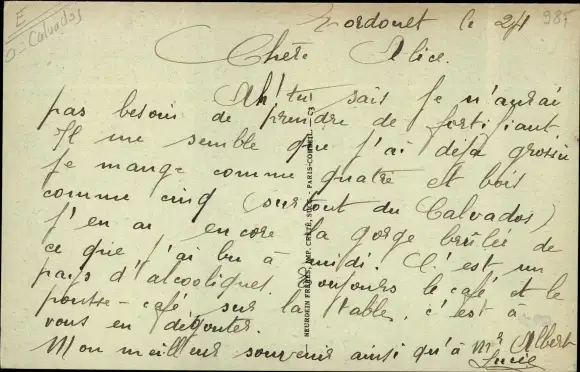 E
0-Calvados
985
le 2/1
Chère Alice.
Ah! tu sais je n'aurai
pas besoin de prendre de fortifiant.
Il me semble que j'ai déjà grossie
Je mange comme quatre et bois
comme cinq (surtout du Calvados)
J'en ai encore la gorge brûlée de
ce que j'ai bu à midi. C'est un
pays d'alcooliques, toujours le café et le
pousse-café sur la table, c'est à
vous en dégouter.
Mon meilleur souvenir ainsi qu'à Mr Albert
Lucie
NEURDEIN FRÈRES, IMP. CRÉTÉ, SUCC. - PARIS-CORBEIL. - C3